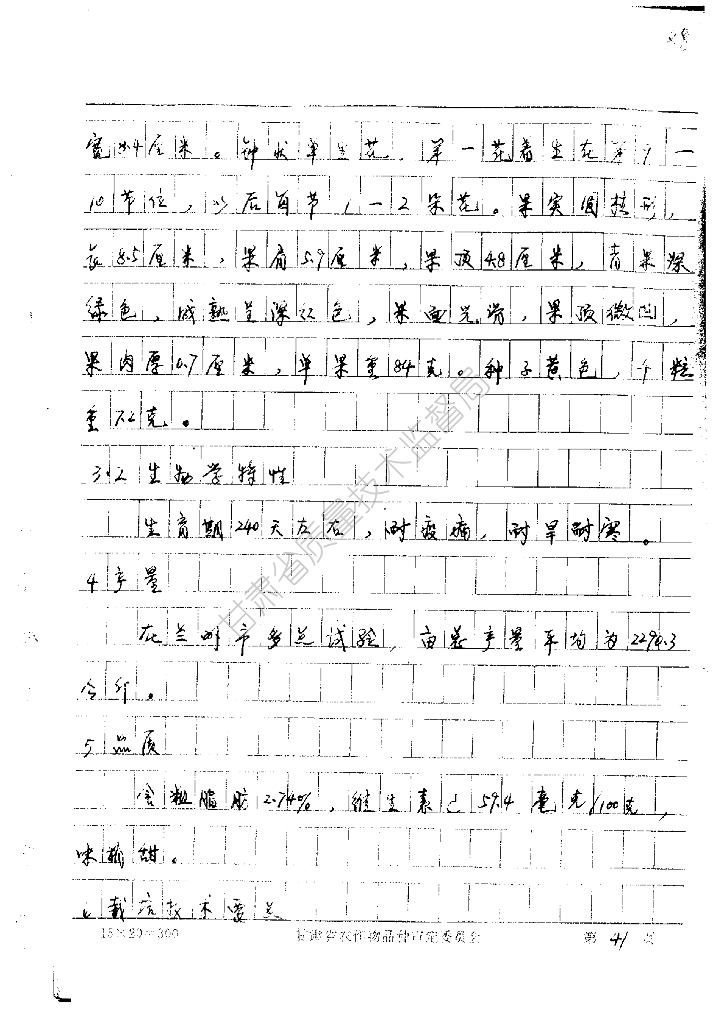 宽3.4厘米。钟状单生花,第一花着生在第9一
10节位,以后每节1一2朵花。果实圆柱形,
长8.5厘米,果肩5.9厘米,果顶4.8厘米,青果深
绿色,成熟呈深红色,果面光滑,果顶微凹,
果肉厚0.7厘米,单果重84克。种子黄色,千粒
重7.2克。
3.2生物学特性
生育期240天左右,耐疫病,耐旱耐寒。
4产量
在兰州市多点试验,亩总产量平均为2294.3
公斤。
5品质
含粗脂肪2.74%,维生素C59.4毫克/100克,
味稍甜。
6栽培技术要点
15×20=300 甘肃省农作物品种审定委员会 第41页
甘肃省质量技术监督局